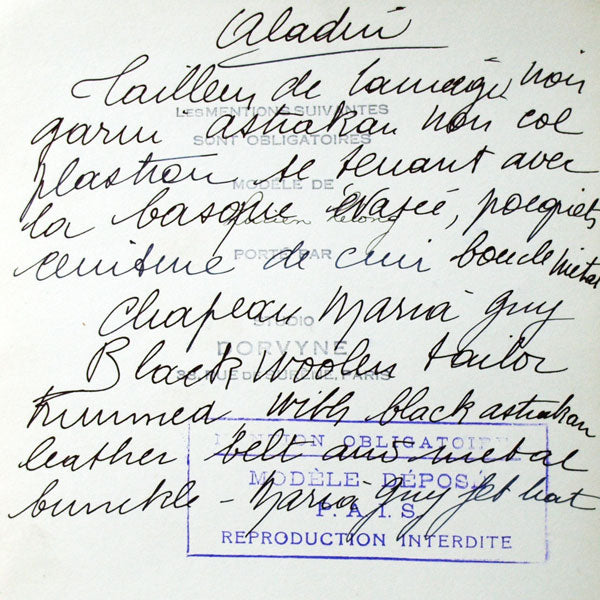 Aladin
Tailleur de lainage noir
LES MENTIONS SUIVANTES
garni astrakan noir col
SONT OBLIGATOIRES
plastron se tenant avec
MODÈLE DE
la basque évasée, poignets
Lucien Lelong
ceinture de cuir boucle métal
PORTÉ PAR
Chapeau Maria Guy
STUDIO
DORVYNE
Black woolen tailor
38, RUE DE SURÈNE, PARIS
trimmed with black astrakan
leather belt and metal
MENTION OBLIGATOIRE
MODÈLE DÉPOSÉ
bunckle - Maria Guy felt hat
P.A.I.S.
REPRODUCTION INTERDITE